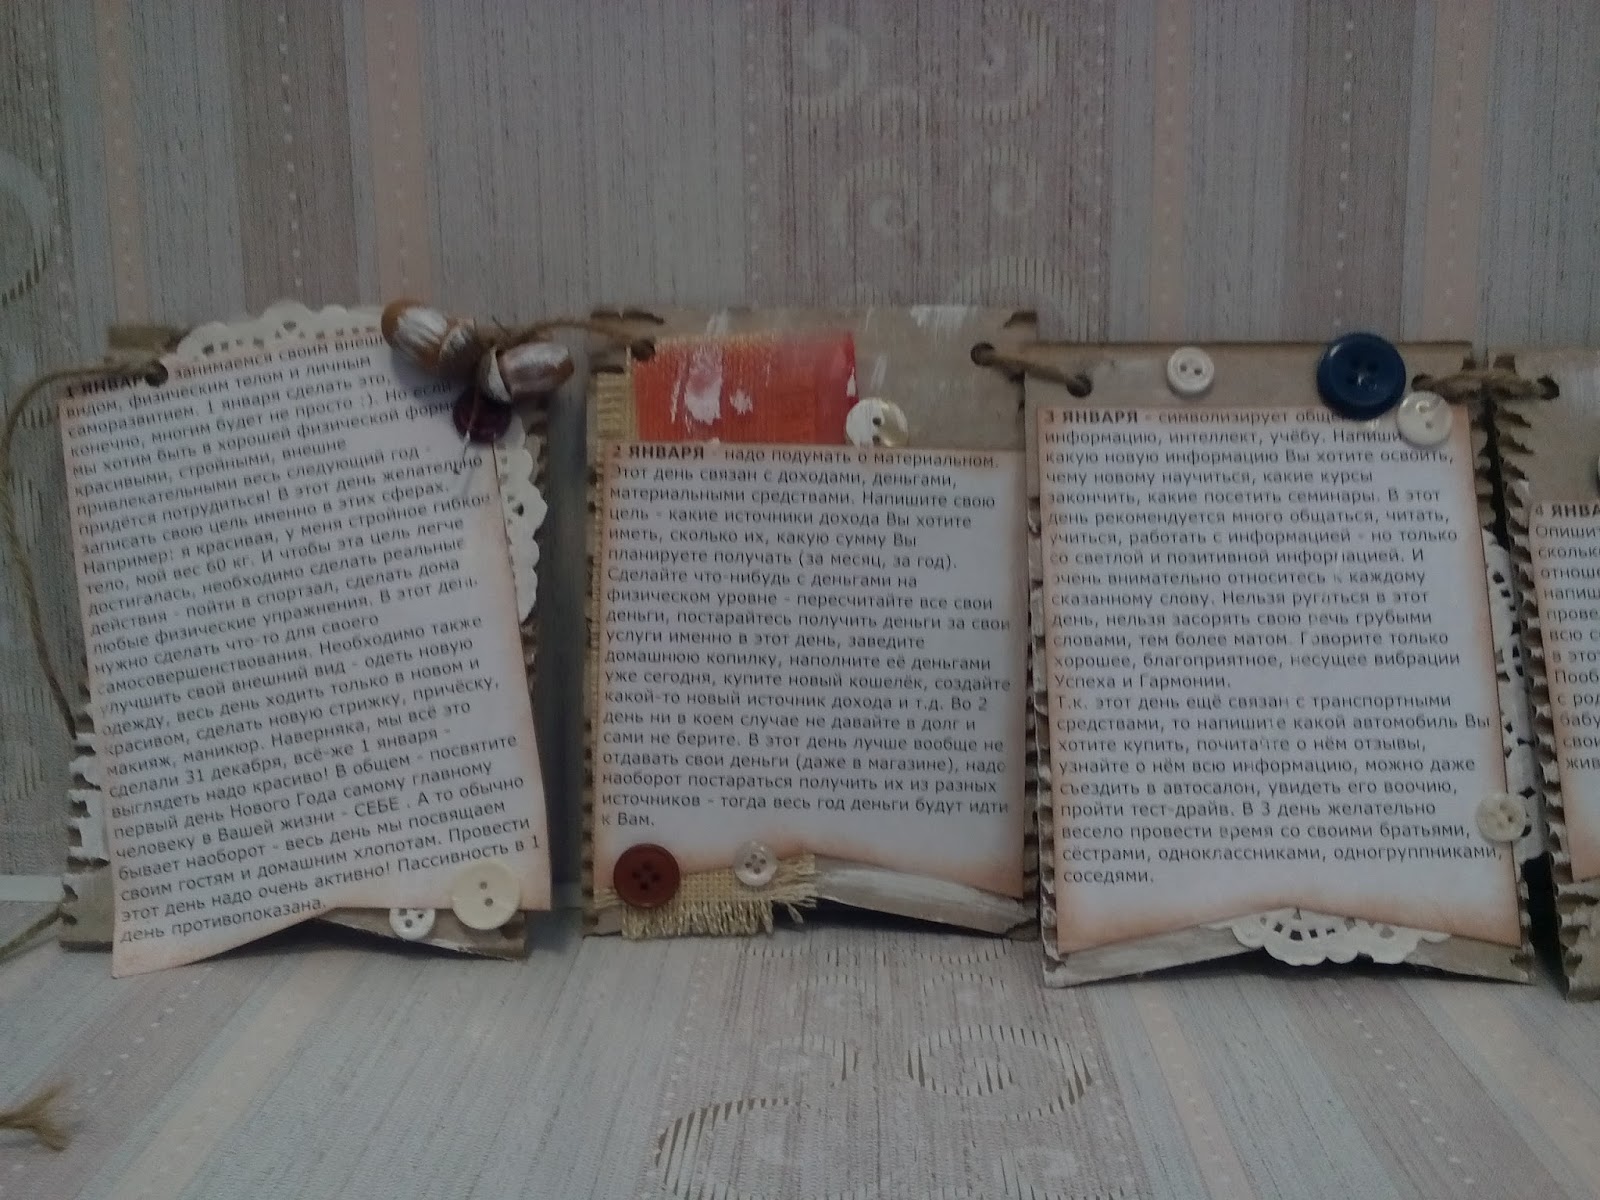 1 ЯНВАР занимаемся своим внеш
видом, физическим телом и личным
саморазвитием. 1 января сделать это,
конечно, многим будет не просто :). Но если
мы хотим быть в хорошей физической форм
красивыми, стройными, внешне
привлекательными весь следующий год -
придётся потрудиться! В этот день желательно
записать свою цель именно в этих сферах.
Например: я красивая, у меня стройное гибкое
тело, мой вес 60 кг. И чтобы эта цель легче
достигалась, необходимо сделать реальные
действия - пойти в спортзал, сделать дома
любые физические упражнения. В этот день
нужно сделать что-то для своего
самосовершенствования. Необходимо также
улучшить свой внешний вид - одеть новую
одежду, весь день ходить только в новом и
красивом, сделать новую стрижку, причёску,
макияж, маникюр. Наверняка, мы всё это
сделали 31 декабря, всё-же 1 января -
выглядеть надо красиво! В общем - посвятите
первый день Нового Года самому главному
человеку в Вашей жизни - СЕБЕ . А то обычно
бывает наоборот - весь день мы посвящаем
своим гостям и домашним хлопотам. Провести
этот день надо очень активно! Пассивность в 1
день противопоказана.
2 ЯНВАРЯ - надо подумать о материальном.
Этот день связан с доходами, деньгами,
материальными средствами. Напишите свою
цель - какие источники дохода Вы хотите
иметь, сколько их, какую сумму Вы
планируете получать (за месяц, за год).
Сделайте что-нибудь с деньгами на
физическом уровне - пересчитайте все свои
деньги, постарайтесь получить деньги за свои
услуги именно в этот день, заведите
домашнюю копилку, наполните её деньгами
уже сегодня, купите новый кошелёк, создайте
какой-то новый источник дохода и т.д. Во 2
день ни в коем случае не давайте в долг и
сами не берите. В этот день лучше вообще не
отдавать свои деньги (даже в магазине), надо
наоборот постараться получить их из разных
источников - тогда весь год деньги будут идти
к Вам.
3 ЯНВАРЯ - символизирует общ
информацию, интеллект, учёбу. Напиши
какую новую информацию Вы хотите освоить,
чему новому научиться, какие курсы
закончить, какие посетить семинары. В этот
день рекомендуется много общаться, читать,
учиться, работать с информацией - но только
со светлой и позитивной информацией. И
очень внимательно относитесь к каждому
сказанному слову. Нельзя ругаться в этот
день, нельзя засорять свою речь грубыми
словами, тем более матом. Говорите только
хорошее, благоприятное, несущее вибрации
Успеха и Гармонии.
Т.к. этот день ещё связан с транспортными
средствами, то напишите какой автомобиль Вы
хотите купить, почитайте о нём отзывы,
узнайте о нём всю информацию, можно даже
съездить в автосалон, увидеть его воочию,
пройти тест-драйв. В 3 день желательно
весело провести время со своими братьями,
сёстрами, одноклассниками, одногруппниками,
соседями.
4 ЯНВА
Опишит
сколько
отноше
напиш
прове
всю с
в это
Пооб
с род
бабу
свои
жив